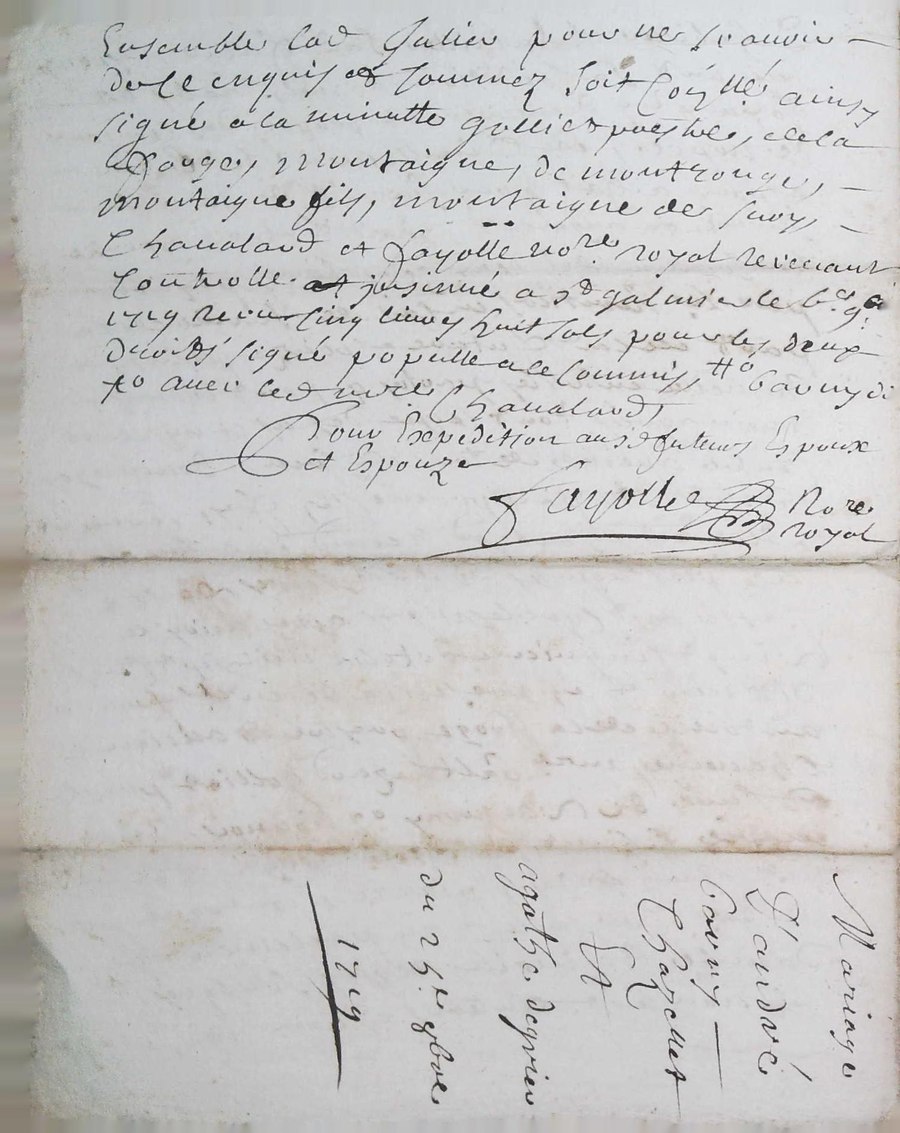 Ensemble lad Julien pour ne scauoir –
de ce enquis et sommez soit coñlle ainsy
signé a la minutte golliet prestre, de la
Douge, montaigne, de montrouge, –
montaigne fils, montaigne de –
Chaualard et fayolle nore royal recevant
Controllé et jnsinué a St galmier le
1719 receu cinq liures huit sols pour les deux
droits signé populle commis,
auec led nore Chaualard,
Pour Expedition aus d futeurs Espoux
et Espouze
Fayolle Nore
royal
Mariage
D'andré
Chazellet
Et
agathe
du 25e 8bre
1719